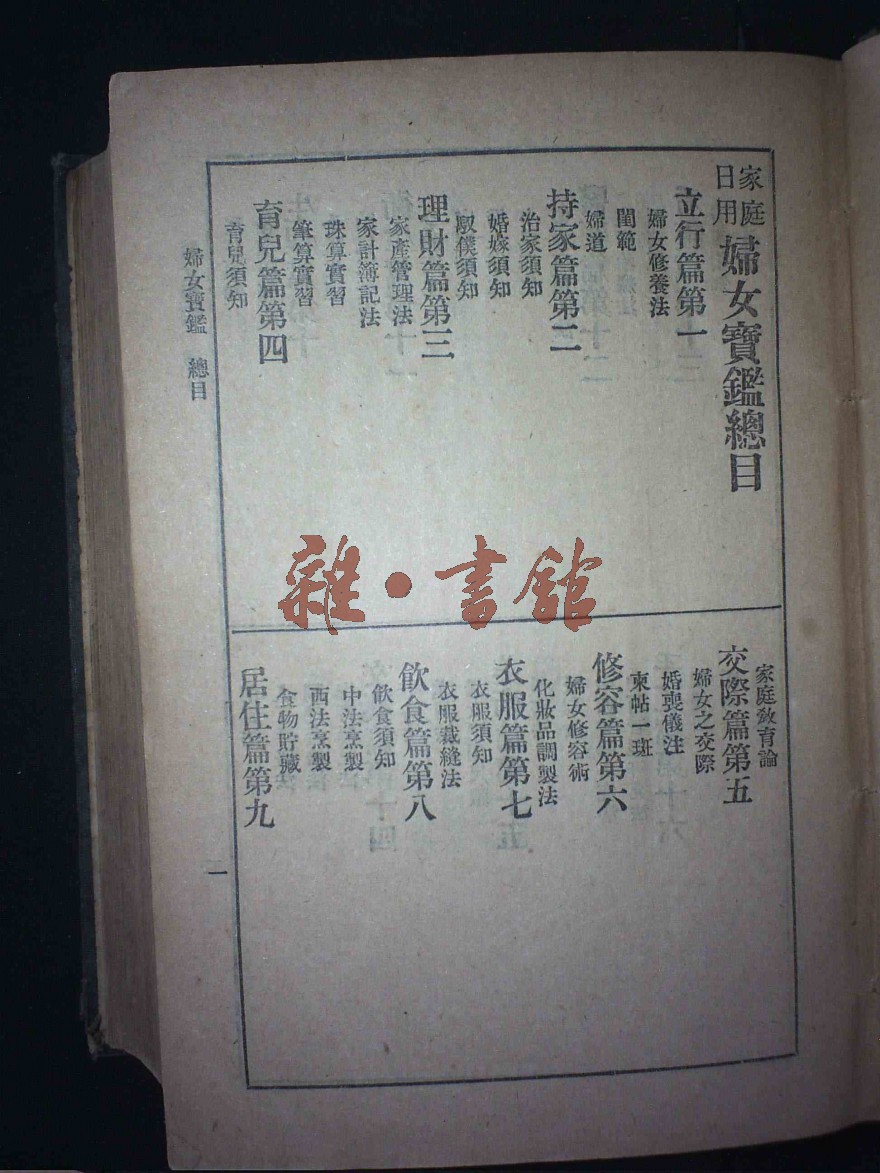 家庭日用 婦女寶鑑總目
立行篇第一
婦女修養法
閨範
婦道
持家篇第二
治家須知
婚嫁須知
馭僕須知
理財篇第三
家產管理法
家計簿記法
珠算實習
筆算實習
育兒篇第四
育兒須知
家庭敎育論
交際篇第五
婦女之交際
婚喪儀注
柬帖一斑
修容篇第六
婦女修容術
化妝品調製法
衣服篇第七
衣服須知
衣服裁縫法
飲食篇第八
飲食須知
中法烹製
西法烹製
食物貯藏法
居住篇第九
婦女寶鑑 總目
一
雜·書館